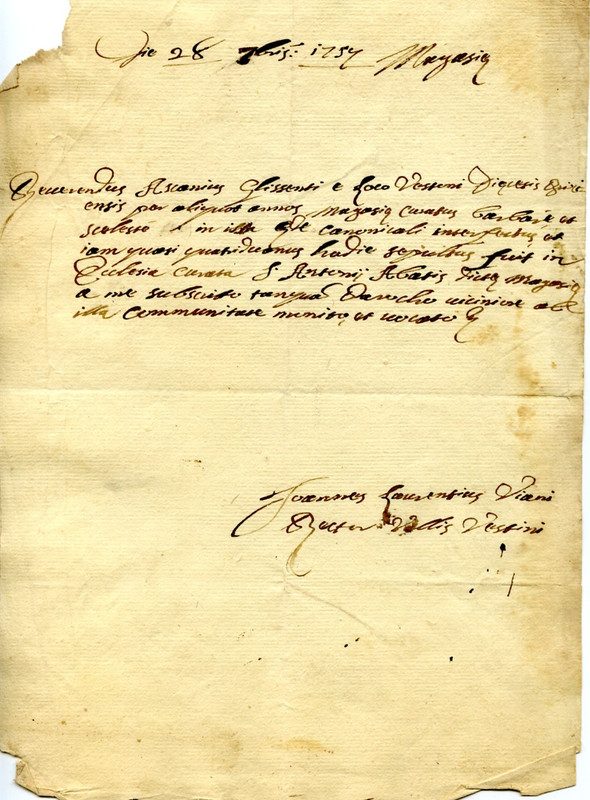 Die 28 7bris: 1757 Magasię
Reverendus Ascanius Glissenti e Loco Vestoni Dięcesis Brixi
ensis per aliquot annos Magasię Curatus barbarę et
scelesto in illa canonicali interfectus et
iam quasi quatriduanus hodie sepultus fuit in
Ecclesia Curata S. Antonij Abatis dictę Magasię
a me subscrito tanquā Parocho viciniore ab
illa Communitate monito et vocato
Joannes Laurentius Viani
Rector Vallis Vestini